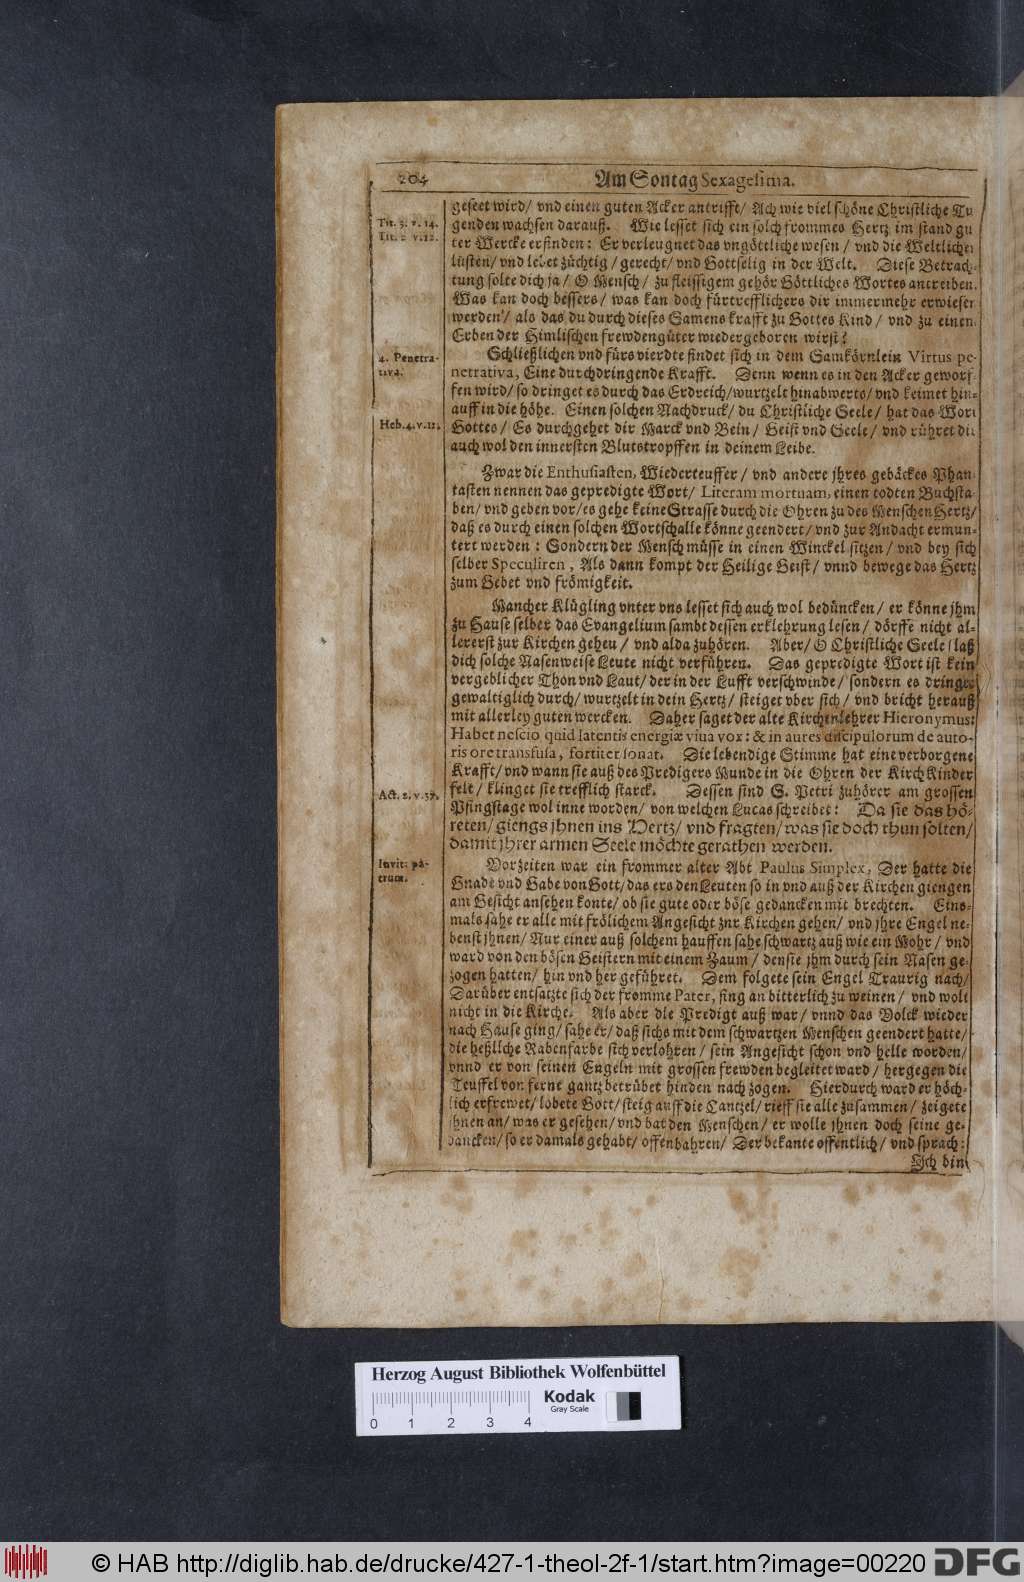 204
Am Sontag Sexagesima.
Tit. 3. v. 14.
Tit. 2 v. 12.
geseet wird/ vnd einen guten Acker antrifft/ Ach wie viel schöne Christliche Tu
genden wachsen darauß. Wie lesset sich ein solch frommes Hertz im stand gu
ter Wercke erfinden: Er verleugnet das vngöttliche wesen/ vnd die Weltlichen
lüsten/ vnd lebet züchtig/ gerecht/ vnd Gottselig in der Welt. Diese Betrach-
tung solte dich ja/ O Mensch/ zu fleissigem gehör Göttliches Wortes antreiben.
Was kan doch bessers/ was kan doch fürtrefflichers dir immermehr erwiesen
werden/ als das du durch dieses Samens krafft zu Gottes Kind/ vnd zu einen
Erben der Himlischen frewdengüter wiedergeboren wirst?
4. Penetra-
tiva.
Schließlichen vnd fürs vierdte findet sich in dem Samkörnlein Virtus pe-
netrativa, Eine durchdringende Krafft. Denn wenn es in den Acker geworf-
fen wird/ so dringet es durch das Erdreich/ wurtzelt hinabwerts/ vnd keimet hin-
auff in die höhe. Einen solchen Nachdruck/ du Christliche Seele/ hat das Wort
Heb. 4. v. 12.
Gottes/ Es durchgehet dir Marck vnd Bein/ Geist vnd Seele/ vnd rühret dir
auch wol den innersten Blutstropffen in deinem Leibe.
Zwar die Enthusiasten, Wiederteuffer/ vnd andere jhres gebäckes Phan-
tasten nennen das gepredigte Wort/ Literam mortuam, einen todten Buchsta-
ben/ vnd geben vor/ es gehe keine Strasse durch die Ohren zu des Menschen Hertz/
daß es durch einen solchen Wortschalle könne geendert/ vnd zur Andacht ermun-
tert werden: Sondern der Mensch müsse in einen Winckel sitzen/ vnd bey sich
selber Speculiren, Als dann kompt der Heilige Geist/ vnnd bewege das Hertz
zum Gebet vnd frömigkeit.
Mancher Klügling vnter vns lesset sich auch wol bedüncken/ er könne jhm
zu Hause selber das Evangelium sambt dessen erklehrung lesen/ dörffe nicht al-
lererst zur Kirchen gehen/ vnd alda zuhören. Aber/ O Christliche Seele/ laß
dich solche Nasenweise Leute nicht verführen. Das gepredigte Wort ist kein
vergeblicher Thon vnd Laut/ der in der Lufft verschwinde/ sondern es dringet
gewaltiglich durch/ wurtzelt in dein Hertz/ steiget vber sich/ vnd bricht herauß
mit allerley guten wercken. Daher saget der alte Kirchenlehrer Hieronymus:
Habet nescio quid latentis energiæ viua vox: & in aures discipulorum de auto-
ris ore transfusa, fortiter sonat. Die lebendige Stimme hat eine verborgene
Krafft/ vnd wann sie auß des Predigers Munde in die Ohren der KirchKinder
felt/ klinget sie trefflich starck. Dessen sind S. Petri zuhörer am grossen
Act. 2. v. 37.
Pfingstage wol inne worden/ von welchen Lucas schreibet: Da sie das hö-
reten/ giengs jhnen ins Hertz/ vnd fragten/ was sie doch thun solten/
damit jhrer armen Seele möchte gerathen werden.
In vit: pa-
trum.
Vorzeiten war ein frommer alter Abt Paulus Simplex, Der hatte die
Gnade vnd Gabe von Gott/ das ers den Leuten so in vnd auß der Kirchen giengen
am Gesicht ansehen konte/ ob sie gute oder böse gedancken mit brechten. Eins-
mals sahe er alle mit frölichem Angesicht zur Kirchen gehen/ vnd jhre Engel ne-
benst jhnen/ Nur einer auß solchem hauffen sahe schwartz auß wie ein Mohr/ vnd
ward von den bösen Geistern mit einem Zaum/ den sie jhm durch sein Nasen ge-
zogen hatten/ hin vnd her geführet. Dem folgete sein Engel Traurig nach/
Darüber entsatzte sich der fromme Pater, fing an bitterlich zu weinen/ vnd wolt
nicht in die Kirche. Als aber die Predigt auß war/ vnnd das Volck wieder
nach Hause ging/ sahe er/ daß sichs mit dem schwartzen Menschen geendert hatte/
die heßliche Rabenfarbe sich verlohren/ sein Angesicht schon vnd helle worden/
vnnd er von seinen Engeln mit grossen frewden begleitet ward/ hergegen die
Teuffel von ferne gantz betrübet hinden nach zogen. Hierdurch ward er höch-
lich erfrewet/ lobete Gott/ steig auff die Cantzel/ rieff sie alle zusammen/ zeigete
jhnen an/ was er gesehen/ vnd bat den Menschen/ er wolle jhnen doch seine ge-
dancken/ so er damals gehabt/ offenbahren/ Der bekante offentlich/ vnd sprach:
Ich bin
Herzog August Bibliothek Wolfenbüttel
Kodak
Gray Scale
0 1 2 3 4
© HAB http://diglib.hab.de/drucke/427-1-theol-2f-1/start.htm?image=00220 DFG